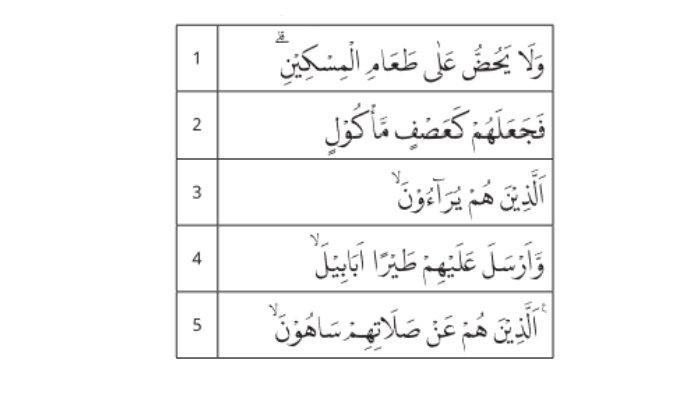 1 وَلَا يَحُضُّ عَلٰى طَعَامِ الْمِسْكِيْنِۗ
2 فَجَعَلَهُمْ كَعَصْفٍ مَّأْكُوْلٍ
3 اَلَّذِيْنَ هُمْ يُرَاۤءُوْنَۙ
4 وَّاَرْسَلَ عَلَيْهِمْ طَيْرًا اَبَابِيْلَۙ
5 الَّذِيْنَ هُمْ عَنْ صَلَاتِهِمْ سَاهُوْنَۙ